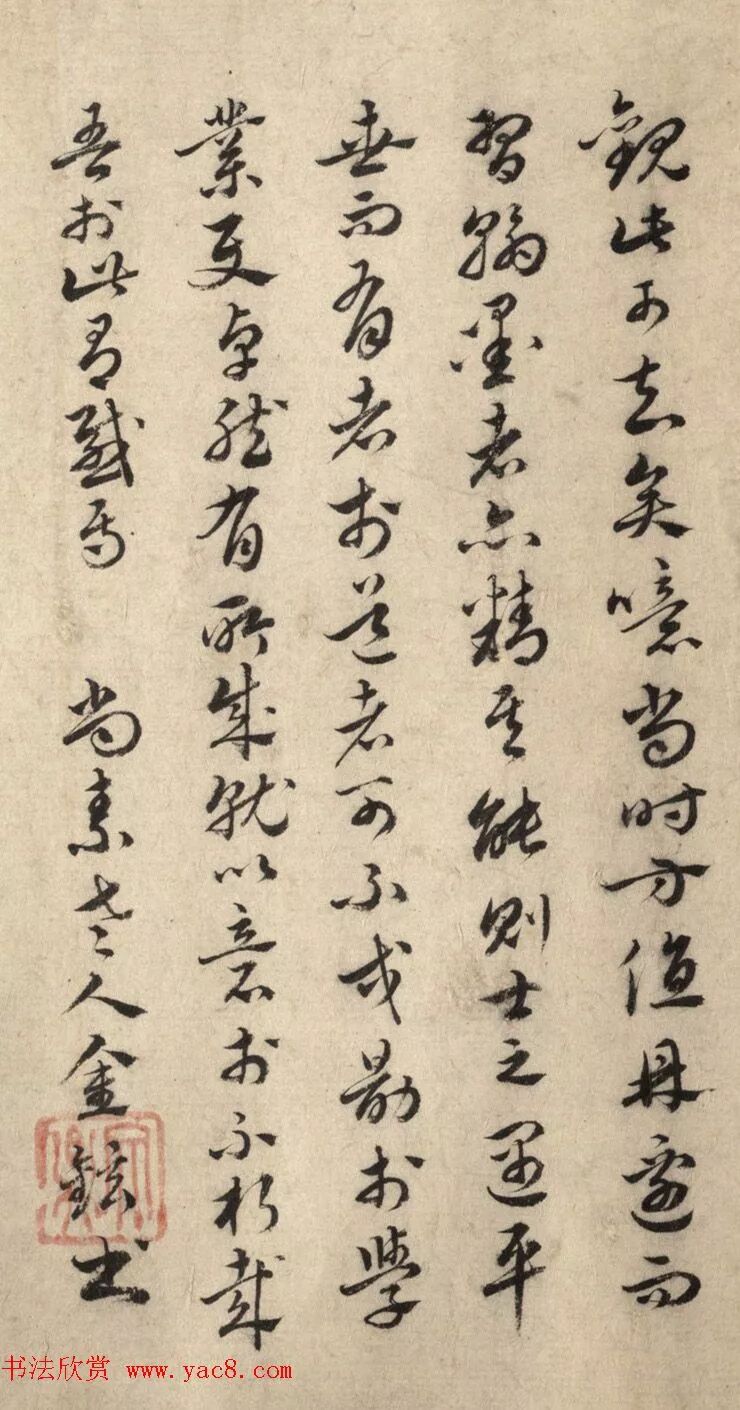 觀此可知矣噫當時方值兵變而
習翰墨者亦精其能則士之遇平
世而有志於道者可不戒勗於學
業更卓然有所成就以意於不朽哉
吾於此有感焉 尚素老人金鉉書
书法欣赏 www.yac8.com